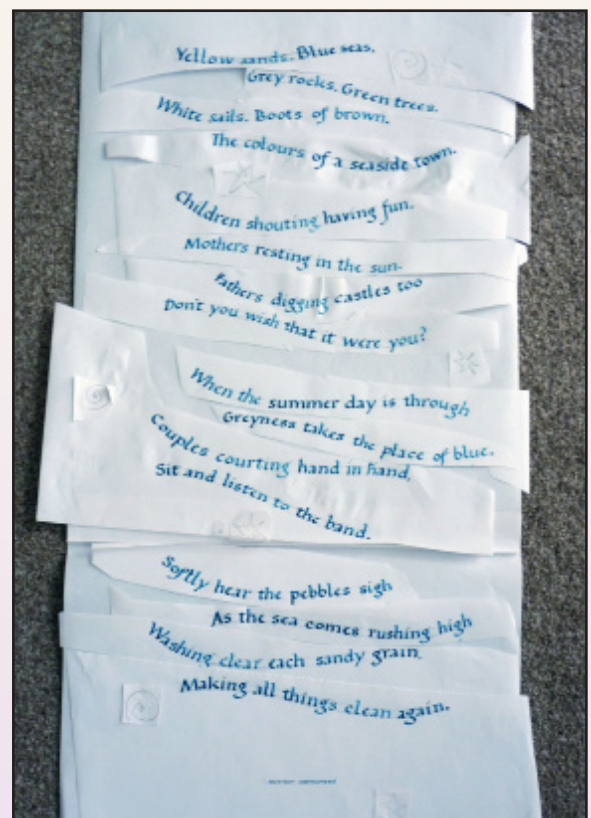 Yellow sands. Blue seas.
Grey rocks. Green trees.
White sails. Boots of brown.
The colours of a seaside town.
Children shouting having fun.
Mothers resting in the sun.
Fathers digging castles too
Don't you wish that it were you?
When the summer day is through
Greyness takes the place of blue.
Couples courting hand in hand,
Sit and listen to the band.
Softly hear the pebbles sigh
As the sea comes rushing high
Washing clear each sandy grain,
Making all things clean again.